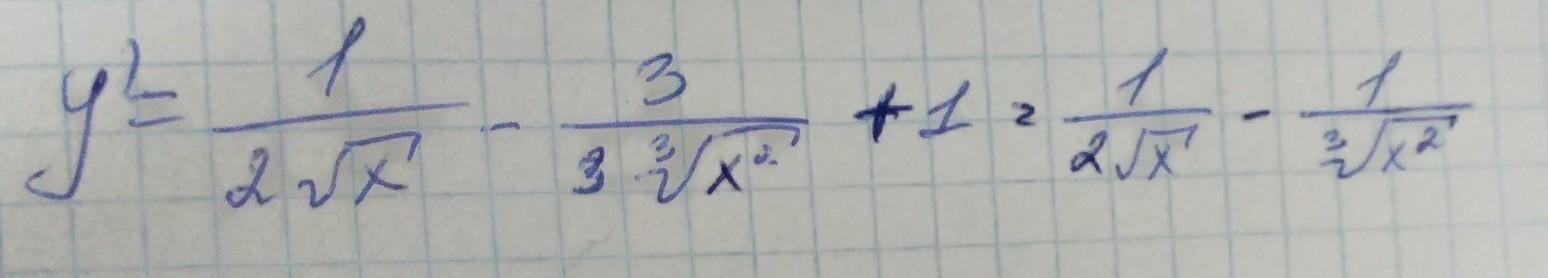 y' = \frac{1}{2\sqrt{x}} - \frac{3}{3\sqrt[3]{x^2}} + 1 = \frac{1}{2\sqrt{x}} - \frac{1}{\sqrt[3]{x^2}}